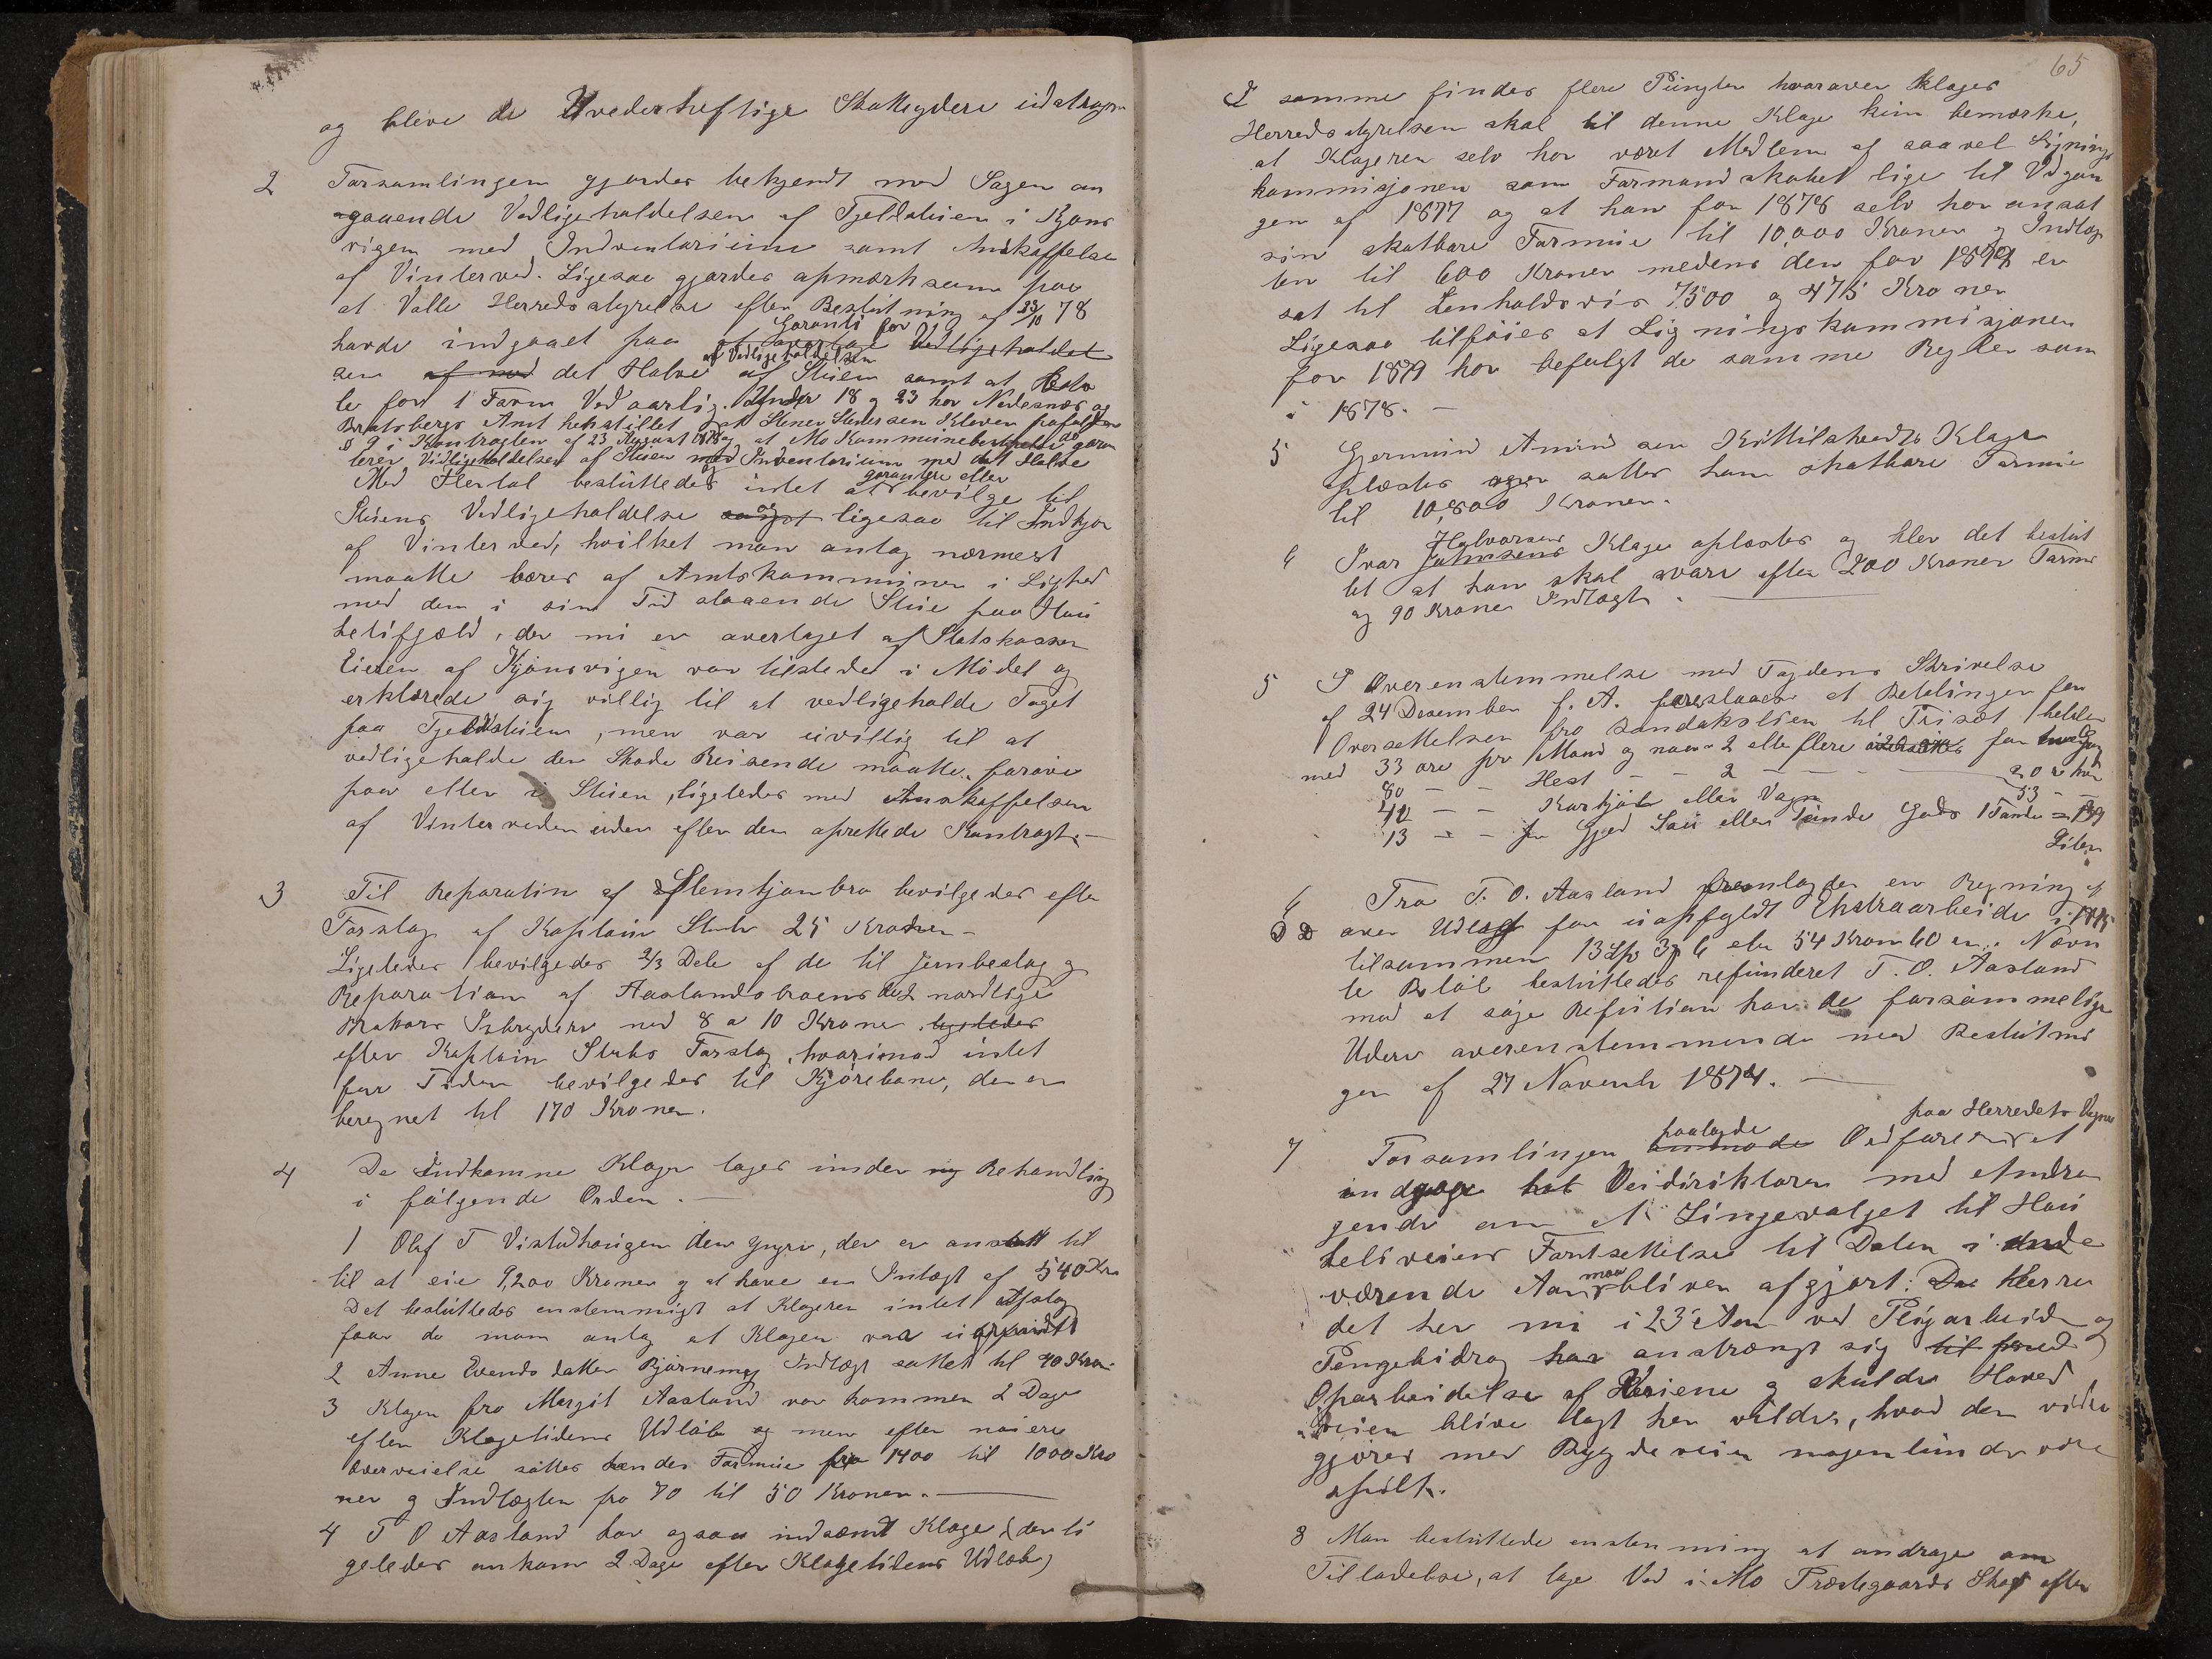 og bleve de Uvederheftige Skatteydere udstrøgne
2 Forsamlingen gjordes bekjendt med Sagen an
gaaende Vedligeholdelsen af Fjeldstuen i Kjøns
vigen med Indventarium samt Anskaffelse
af Vinterved. Ligesaa gjordes opmærksom paa
at Valle Herredsstyrelse efter Beslutning af 23/10 78
havde indgaaet paa at overtage Vedligeholdel
Garanti for
sen af med det Halve af Stuen samt at Beta
af Vedligeholdelsen
le for 1 Favn Ved aarlig. Under 18 og 23 har Nedenæs og
Bratsbergs Amt henstillet at Stener Stenersen Kleven
§ 9 i Kontragten af 23 August 1878 og at Mo Kommunebestyrelse garan
terer Vedligeholdelsen af Stuen med Indventarium med det Halve
Med Flertal besluttedes intet at bevilge til
garantere eller
Stuens Vedligeholdelse og ligesaa til Indkjøb
af Vinterved, hvilket man antog nærmest
maatte bæres af Amtskommunen i Lighed
med den i sin Tid staaende Stue paa Hau
kelifjeld, der nu er overtaget af Statskassen
Eieren af Kjønsvigen var tilstede i Mødet og
erklærede sig villig til at vedligeholde Taget
paa Fjeldstuen, men var uvillig til at
vedligeholde den Skade Reisende maatte forøve
paa eller i Stuen, ligeledes med Anskaffelsen
af Vinterveden uden efter den oprettede Kontragt. —
3 Til Reparation af Slemtjønbro bevilgedes efter
Forslag af Kaptain Stub 25 Kroner —
Ligeledes bevilgedes 2/3 Dele af de til Jernbeslag og
Reparation af Aaslandsbroens de 2 nordlige
Brokars Isbrydere med 8 a 10 Kroner ligeledes
efter Kaptain Stubs Forslag, hvorimod intet
for Tiden bevilgedes til Kjørebane, der er
beregnet til 170 Kroner.
4 De Indkomne Klager toges under ny Behandling
i følgende Orden. —
1 Olaf T Vistadhaugen den yngre, der er ansatt til
til at eie 9,200 Kroner og at have en Intægt af 540 Kr
Det besluttedes enstemmigt at Klageren intet Afslag
faar da man antog at Klagen var ugrundet
2 Anne Evendsdatter Bjørnemyr Indtægt sattes til 40 Kro.
3 Klagen fra Margit Aasland var kommen 2 Dage
efter Klagetidens Udløb og men efter nøiere
Overveielse sattes hendes Formue fra 1400 til 1000 Kro
ner og Indtægten fra 70 til 50 Kroner. —
4 T O Aasland har ogsaa indsendt Klage (der li
geledes ankom 2 Dage efter Klagetidens Udløb)
65
I samme findes flere Pungter hvorover klages
Herredsstyrelsen skal til denne Klage kun bemærke,
at Klageren selv har været Medlem af saavel Lignings
kommisjonen som Formandskabet lige til Udgan
gen af 1877 og at han for 1878 selv har ansat
sin skatbare Formue til 10,000 Kroner og Indtæg
ten til 600 Kroner medens den for 1879 er
sat til henholdsvis 7500 og 475 Kroner
Ligesaa tilføies at Ligningskommisjonen
for 1879 har befulgt de samme Regler som
i 1878. —
5 Gjermund Amundsen Kittilshedts Klage
oplæstes sattes hans skatbare Formue
til 10,800 Kroner.
6 Ivar Johnsens Klage oplæstes og blev det beslut
Halvorsens
tet at han skal svare efter 200 Kroner Formue
og 90 Kroner Indtægt. —
5 I Overenstemmelse med Fogdens Skrivelse
af 24 Desember f. A. foreslaaes at Betalingen for
Oversettelsen fra Sandakslien til Trisæt betales
med 33 øre pr Mand og naar 2 eller flere for
80 — — Hest — — 2 — — — 53 — —
40 — — Karkjøl eller Vogn
13 — — pr Gjed Sau eller Tønde Gods 1 Tønde = 139
Liter
6 Fra T. O. Aasland fremlagdes en Regning af
over Udlæg for uopfyldt Ekstraarbeide i 1875
tilsammen 13 Sp 3 6 eller 54 Kroner 60 øre. Nævn
te Beløb besluttedes refunderet T. O. Aasland
mod at søge Refution hos de forsømmelige
Udere overenstemmende med Beslutnin
gen af 27 Novemb 1874. —
7 Forsamlingen anmode Ordføreren at
paalagde paa Herredets Vegne
andrage hos Veidirektøren med Andra
gende om at Linjevalget til Hau
keliveiens Fortsettelse til Dalen i inde
værende Aar maa bliver afgjort. Da Herre
det her nu i 23 Aar ved Pligtarbeide og
Pengebidrag har anstrængt sig til
Oparbeidelse af Veiene og skulde Hoved
veien blive lagt her vilde, hvad der videre
gjøres med Bygdeveien nogenlunde være
spildt.
8 Man besluttede enstemmig at andrage om
Tilladelse, at tage Ved i Mo Præstegaards Skog efter